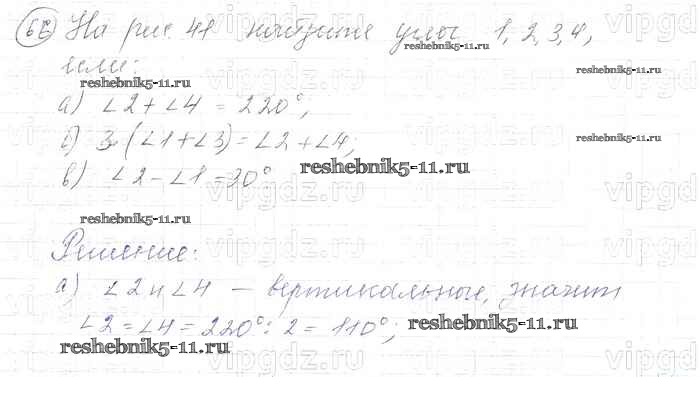 66 На рис. 41 найдите углы 1, 2, 3, 4,
reshebnik5-11.ru
если:
reshebnik5-11.ru
reshebnik5-11.ru
а) ∠2 + ∠4 = 220°;
б) 3·(∠1 + ∠3) = ∠2 + ∠4;
reshebnik5-11.ru
в) ∠2 - ∠1 = 30°
reshebnik5-11.ru
vipgdz.ru
reshebnik5-11.ru
Решение:
а) ∠2 и ∠4 — вертикальные, значит
∠2 = ∠4 = 220° : 2 = 110°;
reshebnik5-11.ru
reshebnik5-11.ru